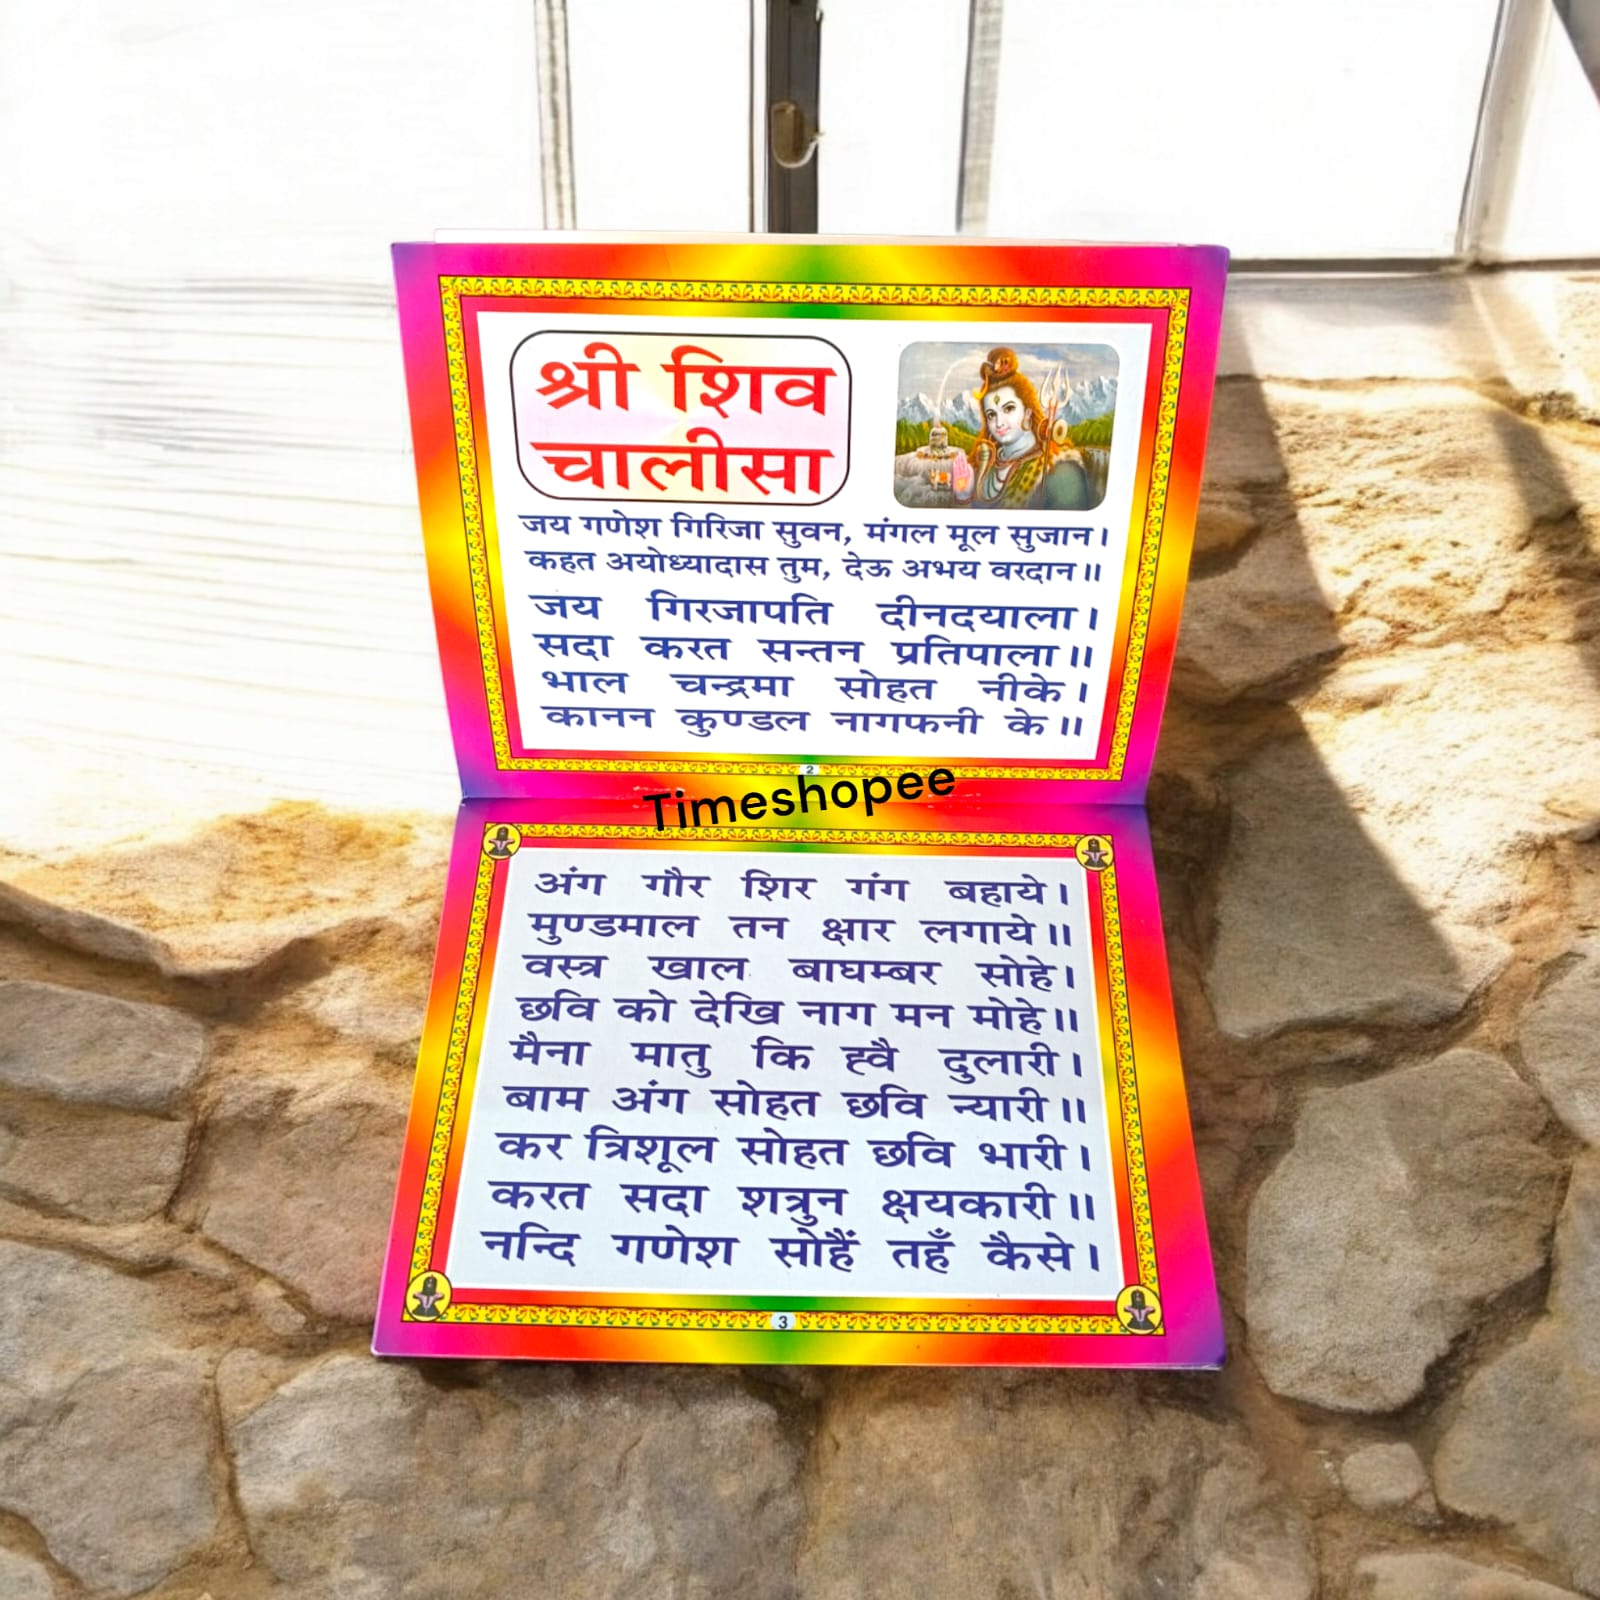 श्री शिव
चालीसा
जय गणेश गिरिजा सुवन, मंगल मूल सुजान।
कहत अयोध्यादास तुम, देऊ अभय वरदान॥
जय गिरजापति दीनदयाला।
सदा करत सन्तन प्रतिपाला॥
भाल चन्द्रमा सोहत नीके।
कानन कुण्डल नागफनी के॥
2
Timeshopee
अंग गौर शिर गंग बहाये।
मुण्डमाल तन क्षार लगाये॥
वस्त्र खाल बाघम्बर सोहे।
छवि को देखि नाग मन मोहे॥
मैना मातु कि ह्वै दुलारी।
बाम अंग सोहत छवि न्यारी॥
कर त्रिशूल सोहत छवि भारी।
करत सदा शत्रुन क्षयकारी॥
नन्दि गणेश सोहैं तहँ कैसे।
3